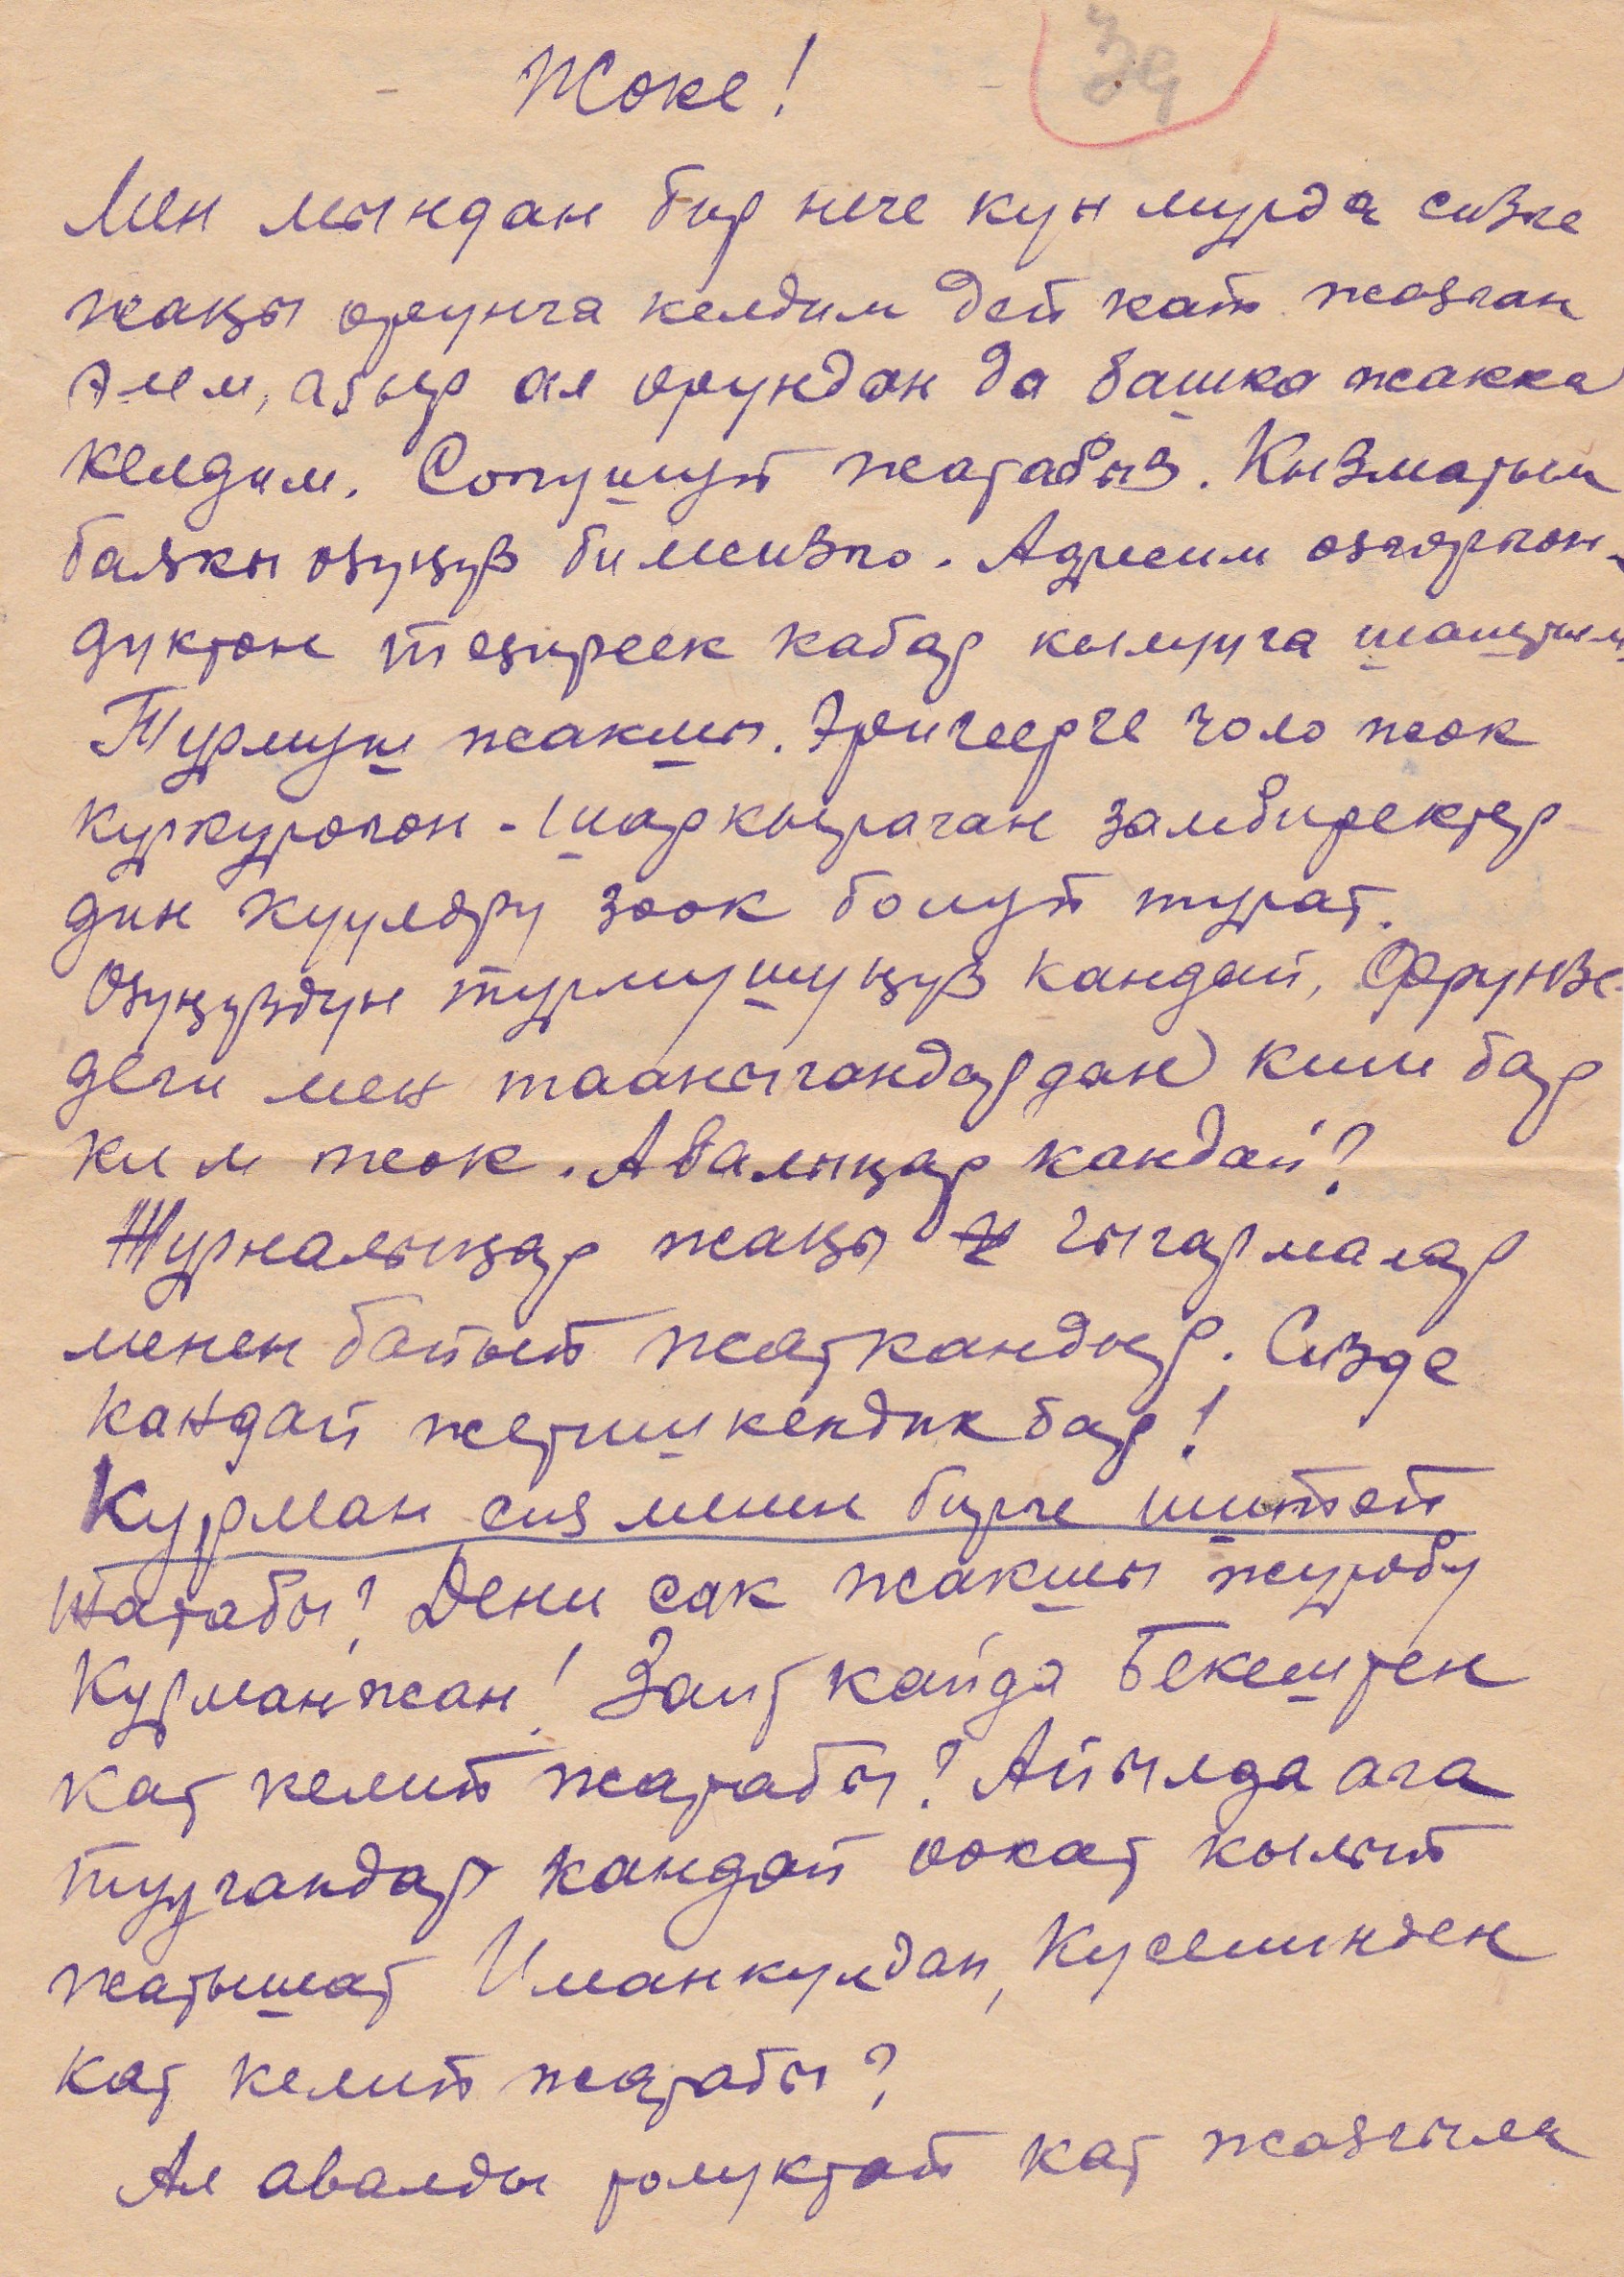 Жоке!
39
Мен мындан бир нече күн мурда сизге
жаңы орунга келдим деп кат жазган
элем, азыр ал орундан да башка жакка
келдим. Согушуп жатабыз. Кызматым
баягы өзүңүз билгизго. Адресим өзгөргөн-
дүктөн тезирээк кабар кылууга шаштым.
Турмуш жакшы. Эригеерге чоло жок
күркүрөгөн - шаркыраган замбиректер
дин күүлөрү зоок болуп турат.
Өзүңүздүн турмушуңуз кандай, Фрунзе-
деги мен тааныгандардан ким бар
ким жок. Авалыңар кандай?
Журналыңар жаңы чыгармалар
менен байып жаткандыр. Сизде
кандай жетишкендик бар!
Курман сиз менен бирге иштеп
жатабы? Дени сак жакшы жүрөбү
Курманжан! Заит кайда Бекештен
кат келип жатабы? Айылда ага
туугандар кандай оокат кылып
жатышат Иманкулдан, Кусейинден
кат келип жатабы?
Ал авалды толуктап кат жазгыла